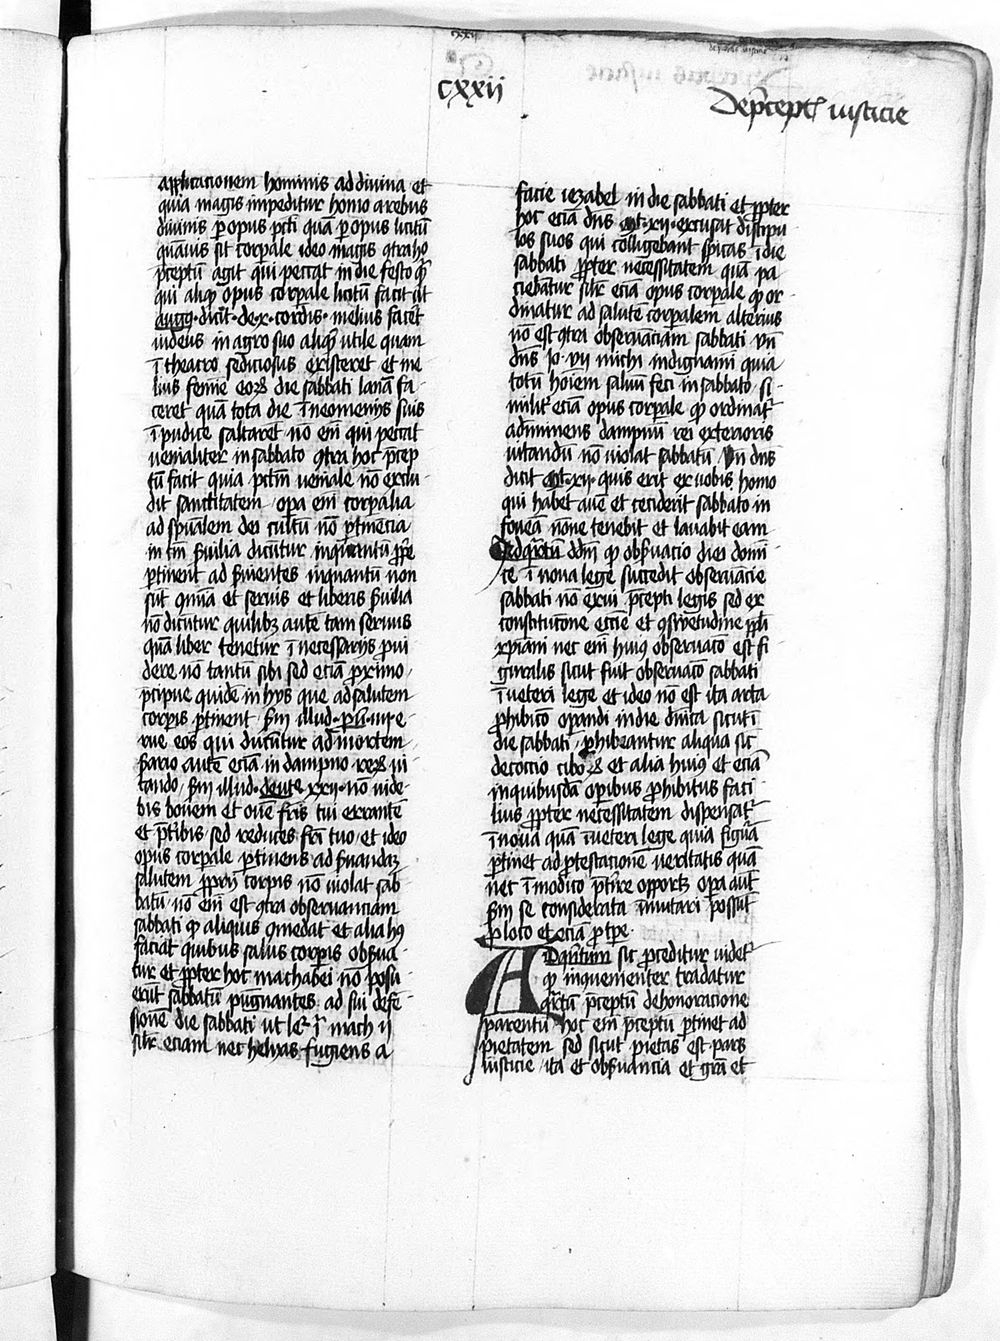 cxxii
De p̄cept̉ iusticie
applicacionem hominis ad diuina et
quia magis impeditur homo a rebus
diuinis ꝑ opus pcti quā ꝑ opus licitū
quāuis sit corpale ideo magis ɔtra ho
p̄ceptū agit qui peccat in die festo qͣ
qui aliqͩ opus corpale licitū facit ut
augꝯ dicit de x cordis melius facēt
iudeus in agro suo aliqͩ utile quam
ī theatro sediciosus existeret et me
lius femīe eoꝝ die sabbati lanā fa
ceret quā tota die ī neomenijs suis
īpudice saltaret nō em̄ qui peccat
uenialiter in sabbato ɔtra hoc p̄cep
tū facit quia pctm̄ ueniale nō exclu
dit sanctitatem opa em̄ corpalia
ad sp̄ualem dei cultū nō ptinēcia
in tm̄ ẜuilia dicūtur inquantū ꝓpͤ
ptinent ad ẜuientes inquantū non
sūt ɔmūia et seruis et liberis ẜuilia
nō dicūtur quilibꝫ aute tam seruus
quā liber tenetur ī necessarijs ꝓui
dere nō tantū sibi sed eciā ꝓximo
p̄cipue quidē in hijs que ad salutem
corpis ptinent ẜm illud pū. iiii e
rue eos qui ducūtur ad mortem
ẜario aute eciā in dampno reꝝ ui
tando ẜm illud deut̉ xxii nō uide
bis bouem et ouē fr̄is tui errantē
et p̄tibis sed reduces fr̄i tuo et ideo
opus corpale ptinens ad ẜuandaꝫ
salutem ꝓprij corpis nō uiolat sab
batū nō em̄ est ɔtra obseruanciam
sabbati qͩ aliquis ɔmedat et alia hꝯ
faciat quibus salus corpis obẜua
tur et ꝓpter hoc machabei nō poll̉u
erūt sabbatū pugnantes ad sui defe
sionē die sabbati ut leͬ ī mach ii
sil̉r eciam nec helyas fugiens a
facie iezabel in die sabbati et ꝓpter
hoc eciā dn̄s mt xii excusat discipu
los suos qui colligebant spicas ī die
sabbati ꝓpter necessitatem quā pa
ciebātur sil̉r eciā opus corpale qͩ or
dinatur ad salutē corpalem alterius
nō est ɔtra obseruāciam sabbati vn̄
dn̄s Jo vij michi indignamī quia
totū hoīem saluū feci in sabbato si
milit̉ eciā opus corpale qͩ ordinat̉
ad īminens dampnū rei exterioris
uitandū nō uiolat sabbatū Vn̄ dn̄s
dicit mt xii quis erit ex uobis homo
qui habet ouē et ceciderit sabbato in
foueā nōne tenebit et leuabit eam
Ad qͣrtū ddm̄ qͩ obẜuacio diei domī
ce ī noua lege succedit obseruācie
sabbati nō exui p̄cepti legis sed ex
constitucōne eccīe et ɔswetudine ppl̉i
xpiāni nec em̄ huiꝯ obseruacō est fi
guralis sicut fuit obseruacō sabbati
ī ueteri lege et ideo nō est ita arta
ꝓhibicō opandi in die dn̄ica sicut ī
die sabbati ꝓhibeantur aliqua sic
decoctio ciboꝝ et alia huiꝯ et eciā
in quibusdā opibus ꝓhibitus faci
lius ꝓpter necessitatem dispensat̉
ī noua quā ī ueteri lege quia figurā
ptinet ad ꝓtestacionē ueritatis quā
nec ī modico p̄tire opportꝫ opa aut̄
ẜm se considerata īmutari possūt
ꝓ loco et eciā ꝓ tpe
Ad qͥntum sic ꝓceditur uidet̉
qͩ inquenienter tradatur
qͣrtū p̄ceptū de honoracione
parentū hoc em̄ p̄ceptū ptinet ad
pietatem sed sicut pietas est pars
iusticie ita et obẜuancia et grā et